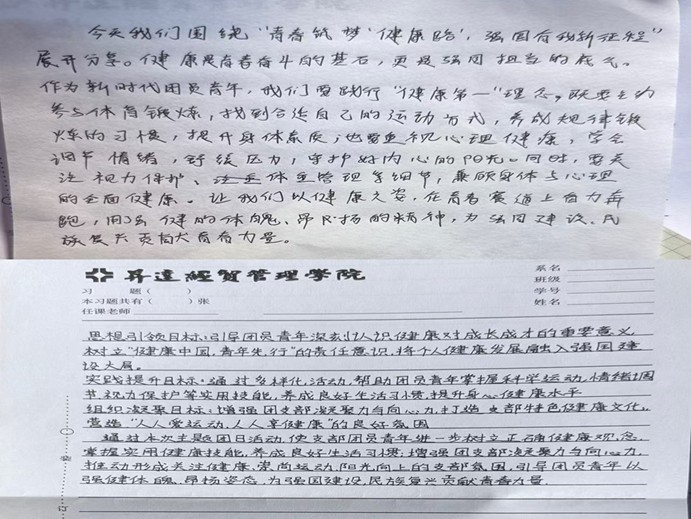 今天我们围绕“青春筑梦‘健康路’，强国有我新征程”
展开分享。健康是青春奋斗的基石，更是强国担当的底气。
作为新时代团员青年，我们要践行“健康第一”理念，既要主动
参与体育锻炼，找到合适自己的运动方式，养成规律锻
炼的习惯，提升身体素质；也要重视心理健康，学会
调节情绪，舒缓压力，守护好内心的阳光。同时，要关
注视力保护、体重管理等细节，兼顾身体与心理
的全面健康。让我们以健康之姿，在青春赛道上奋力奔
跑，用强健的体魄、昂扬的精神，为强国建设、民
族复兴贡献青春力量。
昇达经贸管理学院
系名
班级
学号
姓名
习 题（ ）
本习题共有（ ）张
任课老师
思想引领目标：引导团员青年深刻认识健康对成长成才的重要意义
树立“健康中国，青年先行”的责任意识，将个人健康发展融入强国建
设大局。
实践提升目标：通过多样化活动，帮助团员青年掌握科学运动、情绪调
节、视力保护等实用技能，养成良好生活习惯，提升身心健康水平
组织凝聚目标：增强团支部凝聚力与向心力，打造支部特色健康文化，
营造“人人爱运动，人人享健康”的良好氛围
通过本次主题团日活动，使支部团员青年进一步树立正确健康观念，
掌握实用健康技能，养成良好生活习惯；增强团支部凝聚力与向心力，
推动形成关注健康、崇尚运动、阳光向上的支部氛围，引导团员青年以
强健体魄、昂扬姿态，为强国建设、民族复兴贡献青春力量.
订